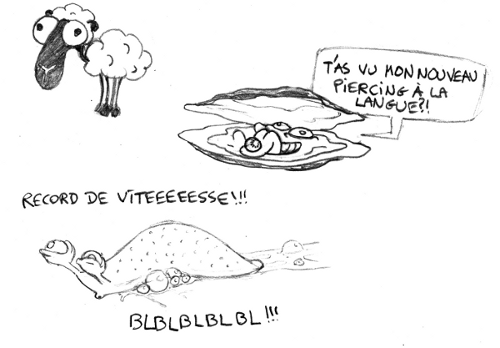 T'AS VU MON NOUVEAU
PIERCING À LA
LANGUE?!
RECORD DE VITEEEEESSE!!!
BLBLBLBLBL!!!